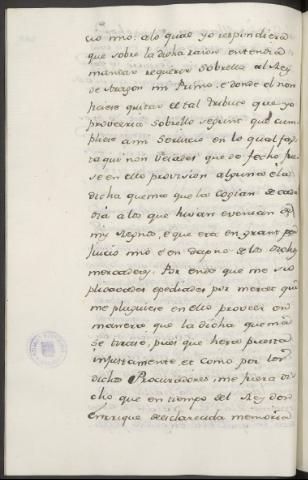 cio mio: alo qual yo respondiera
que sobre la dicha razon entendia
mandar requerir sobrello al Rey
de Aragon mi Primo: e donde el non
quitar el tal tributo que yo
proveeria sobrello segunt que cum
pliese a mi servicio en lo qual fas
ta qui non
se en ello provision alguna e la
dicha quema que la cogian de cada
dia a los que ivan e venian a
mis Regnos, e que era en grant per
juicio mio e en dapno de los dichos
mercaderes. Por ende que me su
plicavades e pediades por merced que
me pluguiese en ello proveer en
manera, que la dicha quema
se tirase, pues que hera puesta
injustamente et como por los
dichos Procuradores, me fuera di
cho que en tiempo del Rey don
Enrique de esclarecida memoria